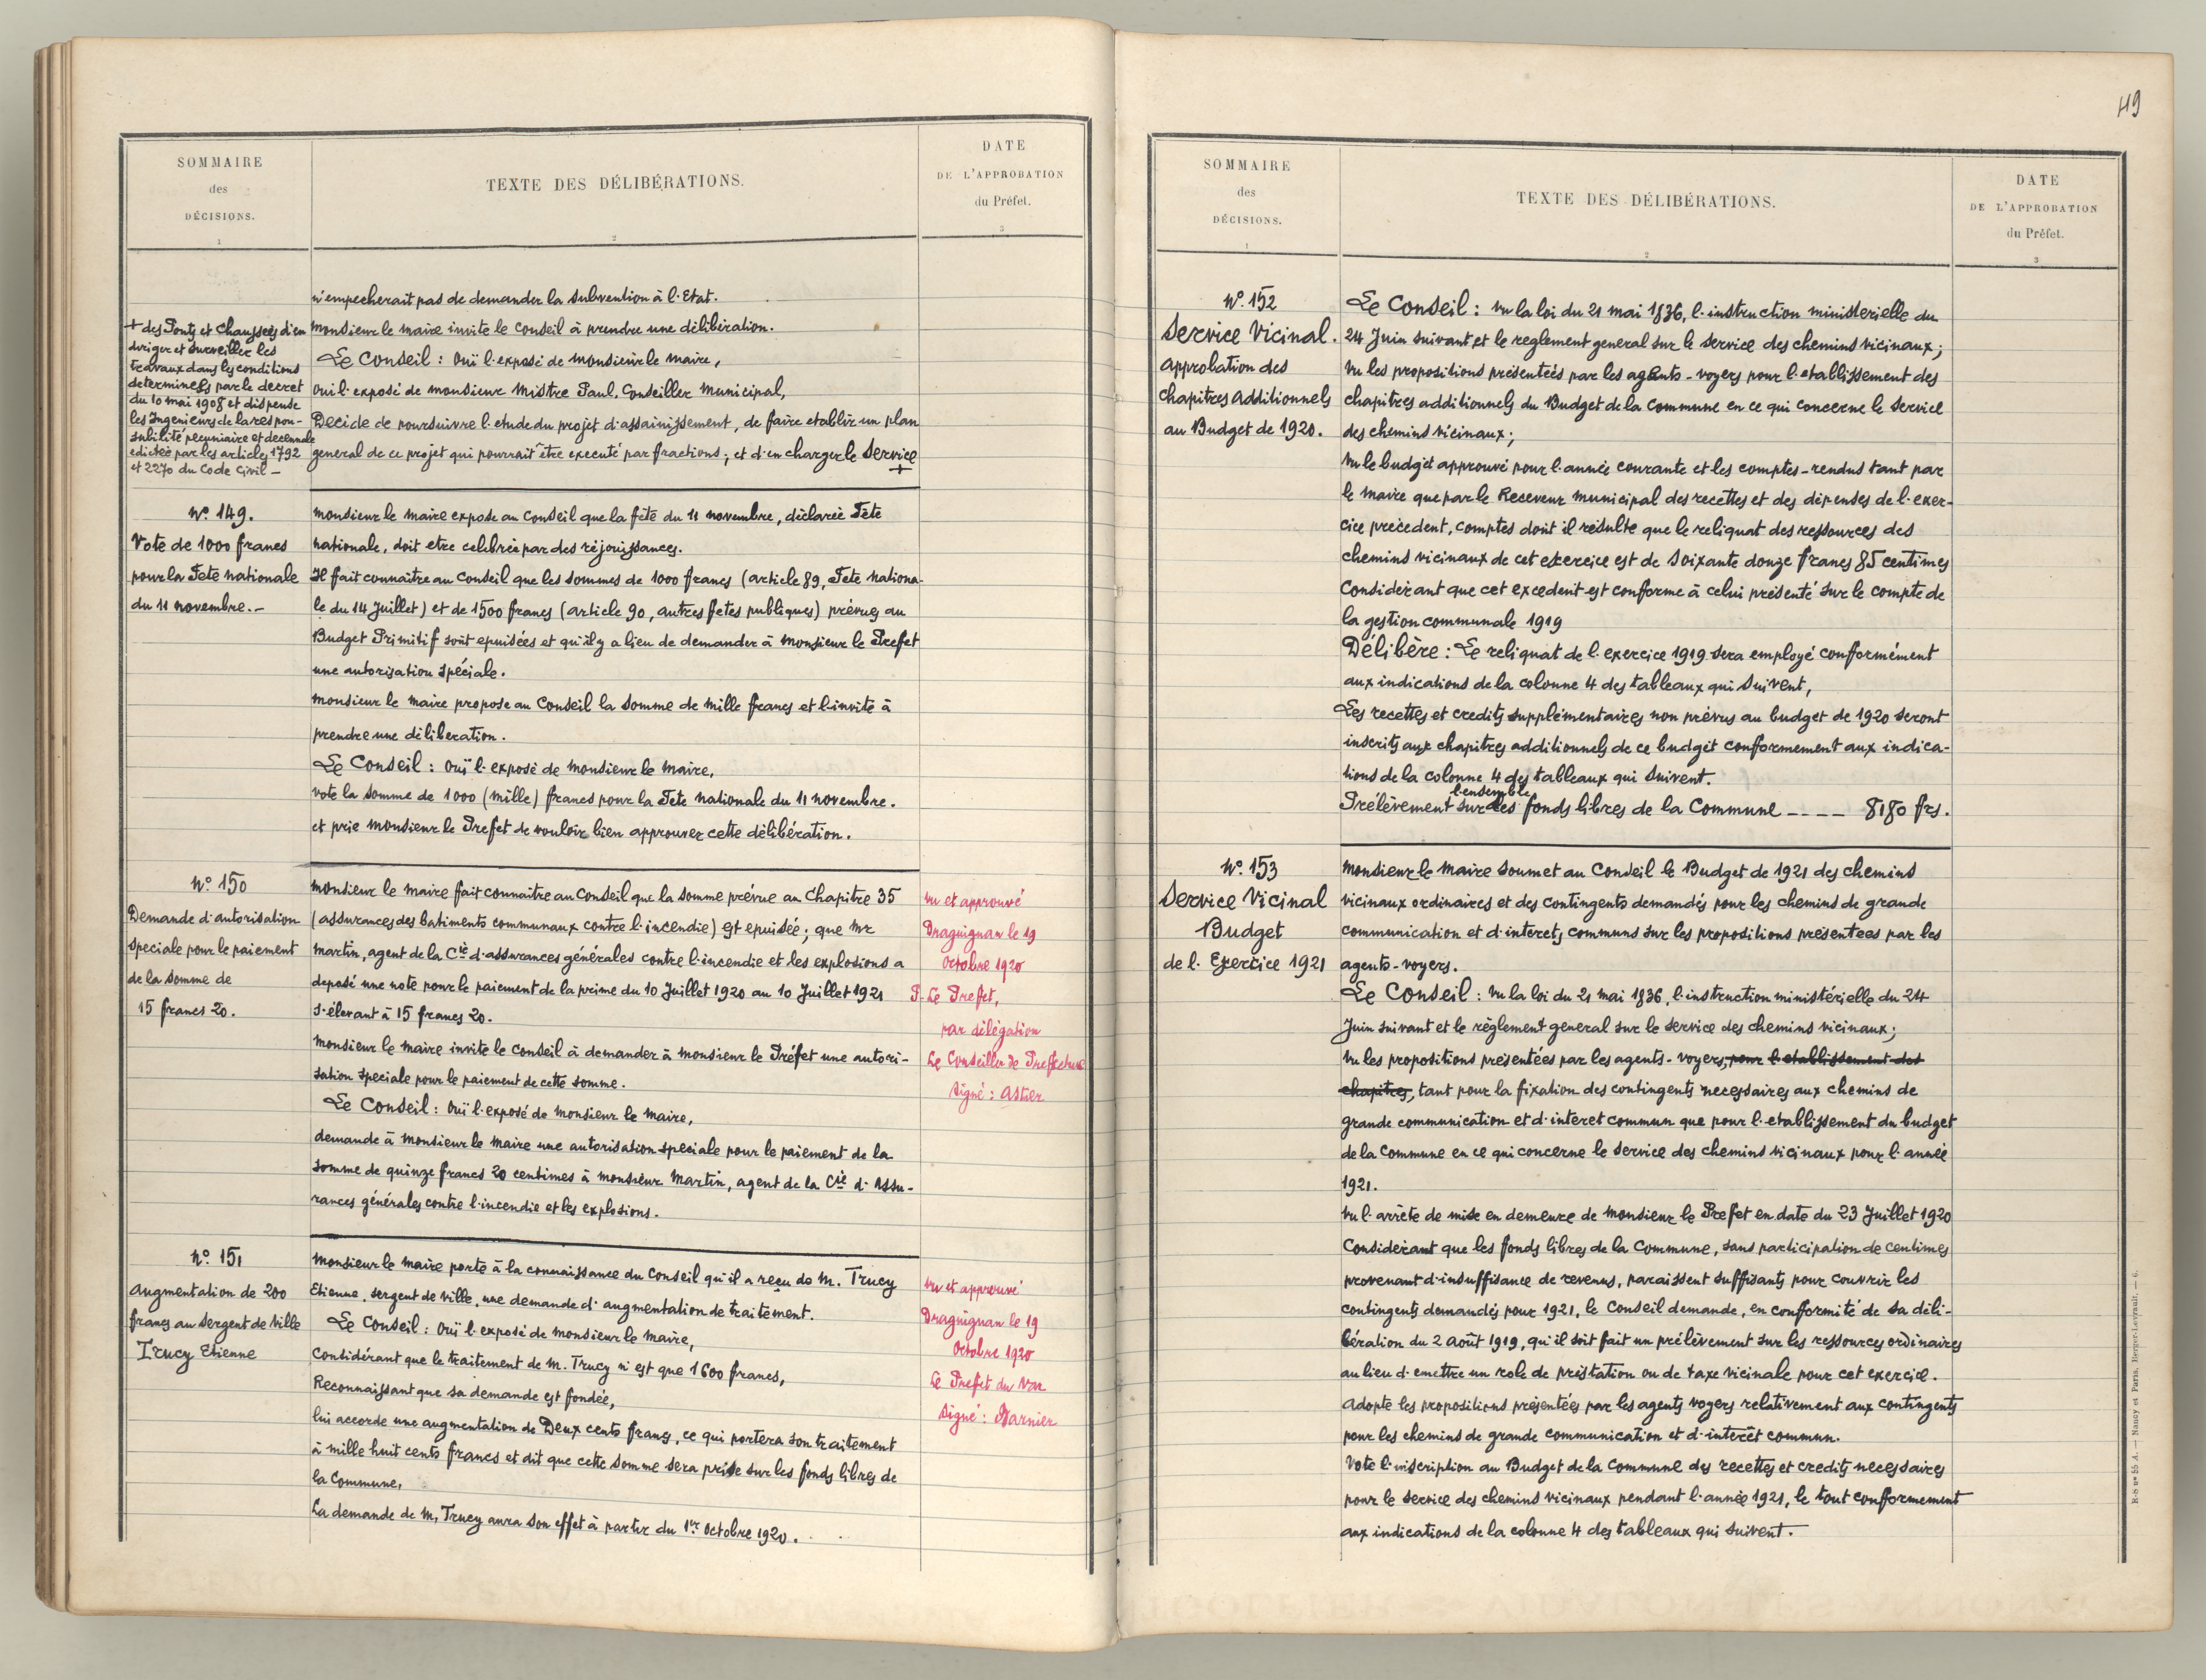 SOMMAIRE
des
DÉCISIONS.
1
TEXTE DES DÉLIBÉRATIONS.
2
DATE
DE L'APPROBATION
du Préfet.
3
n'empecherait pas de demander la subvention à l'Etat.
monsieur le maire invite le Conseil à prendre une délibération.
Le Conseil : Ouï l'exposé de monsieur le maire,
oui l'exposé de monsieur Mistre Paul, Conseiller municipal,
Decide de poursuivre l'etude du projet d'assainissement, de faire etablir un plan
general de ce projet qui pourrait être executé par fractions; et d'en charger le Service
+
+ des Ponts et Chaussées d'en
diriger et surveiller les
travaux dans les conditions
determinees par le decret
du 10 mai 1908 et dispense
les Ingenieurs de la respon-
sabilité pecuniaire et decennale
edictée par les articles 1792
et 2270 du Code Civil -
No. 149.
Vote de 1000 francs
pour la Fete nationale
du 11 novembre.-
monsieur le maire expose au Conseil que la fête du 11 novembre, déclarée Fête
nationale, doit etre celebrée par des réjouissances.
Il fait connaitre au Conseil que les sommes de 1000 francs (article 89, Fete nationa-
le du 14 Juillet) et de 1500 francs (article 90, autres fetes publiques) prévues au
Budget Primitif sont epuisées et qu'il y a lieu de demander à monsieur le Prefet
une autorisation spéciale.
monsieur le maire propose au Conseil la somme de mille francs et l'invite à
prendre une déliberation.
Le Conseil : ouï l'exposé de monsieur le maire,
vote la somme de 1000 (mille) francs pour la Fete nationale du 11 novembre.
et prie monsieur le Prefet de vouloir bien approuver cette délibération.
No. 150
Demande d'autorisation
speciale pour le paiement
de la somme de
15 francs 20.
monsieur le maire fait connaitre au Conseil que la somme prévue au Chapitre 35
(assurances des batiments communaux contre l'incendie) est epuisée; que Mr
martin, agent de la Cie d'assurances générales contre l'incendie et les explosions a
deposé une note pour le paiement de la prime du 10 Juillet 1920 au 10 Juillet 1921
s'élevant à 15 francs 20.
monsieur le maire invite le conseil à demander à monsieur le Préfet une autori-
sation speciale pour le paiement de cette somme.
Le Conseil : ouï l'exposé de monsieur le maire,
demande à monsieur le maire une autorisation speciale pour le paiement de la
somme de quinze francs 20 centimes à monsieur martin, agent de la Cie d'Assu-
rances générales contre l'incendie et les explosions.
vu et approuvé
Draguignan le 19
Octobre 1920
P. Le Prefet,
par délégation
Le Conseiller de Prefecture
signé : Astier
No. 151
augmentation de 200
francs au sergent de ville
Trucy Etienne
monsieur le maire porte à la connaissance du Conseil qu'il a reçu de M. Trucy
Etienne, sergent de ville, une demande d'augmentation de traitement.
Le Conseil : ouï l'exposé de monsieur le maire,
Considérant que le traitement de m. Trucy n'est que 1600 francs,
Reconnaissant que sa demande est fondée,
lui accorde une augmentation de Deux cents francs, ce qui portera son traitement
à mille huit cents francs et dit que cette somme sera prise sur les fonds libres de
la Commune,
La demande de m. Trucy aura son effet à partir du 1er octobre 1920.
vu et approuvé
Draguignan le 19
Octobre 1920
Le Prefet du Var
signé :
SOMMAIRE
des
DÉCISIONS.
1
TEXTE DES DÉLIBÉRATIONS.
2
DATE
DE L'APPROBATION
du Préfet.
3
49
No. 152
Service Vicinal.
approbation des
Chapitres additionnels
au Budget de 1920.
Le Conseil : vu la loi du 21 mai 1836, l'instruction ministerielle du
24 Juin suivant et le reglement general sur le service des chemins vicinaux;
vu les propositions présentées par les agents-voyers pour l'etablissement des
chapitres additionnels du Budget de la Commune en ce qui concerne le service
des chemins vicinaux;
vu le budget approuvé pour l'année courante et les comptes-rendus tant par
le maire que par le Receveur municipal des recettes et des dépenses de l'exer-
cice precedent, comptes dont il résulte que le reliquat des ressources des
chemins vicinaux de cet exercice est de soixante douze francs 85 centimes
Considerant que cet excedent est conforme à celui présenté sur le compte de
la gestion communale 1919
Délibère : Le reliquat de l'exercice 1919 sera employé conformément
aux indications de la colonne 4 des tableaux qui suivent,
Les recettes et credits supplementaires non prévus au budget de 1920 seront
inscrits aux chapitres additionnels de ce budget conformement aux indica-
tions de la colonne 4 des tableaux qui suivent.
l'ensemble
Prélèvement sur des fonds libres de la Commune ---- 8180 frs.
No. 153
Service Vicinal
Budget
de l'Exercice 1921
monsieur le maire soumet au Conseil le Budget de 1921 des chemins
vicinaux ordinaires et des contingents demandés pour les chemins de grande
communication et d'interets communs sur les propositions presentees par les
agents-voyers.
Le Conseil : vu la loi du 21 mai 1836, l'instruction ministérielle du 24
Juin suivant et le règlement general sur le service des chemins vicinaux;
vu les propositions presentées par les agents-voyers, pour l'etablissement des
chapitres, tant pour la fixation des contingents necessaires aux chemins de
grande communication et d'interet commun que pour l'etablissement du budget
de la Commune en ce qui concerne le service des chemins vicinaux pour l'année
1921.
vu l'arrête de mise en demeure de monsieur le Prefet en date du 23 Juillet 1920
Considerant que les fonds libres de la Commune, sans participation de centimes
provenant d'insuffisance de revenus, paraissent suffisants pour couvrir les
contingents demandés pour 1921, le Conseil demande, en conformité de sa déli-
bération du 2 août 1919, qu'il soit fait un prélèvement sur les ressources ordinaires
au lieu d'emettre un role de prestation ou de taxe vicinale pour cet exercice.
adopte les propositions présentées par les agents voyers relativement aux contingents
pour les chemins de grande communication et d'interêt commun.
Vote l'inscription au Budget de la Commune des recettes et credits necessaires
pour le service des chemins vicinaux pendant l'année 1921, le tout conformement
aux indications de la colonne 4 des tableaux qui suivent.
B-S no 55 A. — Nancy et Paris, Berger-Levrault. — 6.